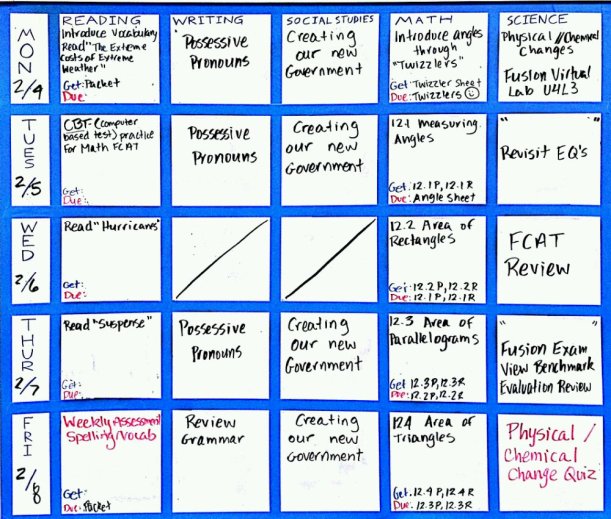 READING WRITING SOCIAL STUDIES MATH SCIENCE
MON
2/4
Introduce Vocabulary
Read "The Extreme
Costs of Extreme
Weather"
Get: Packet
Due:
Possessive
Pronouns
Creating
our new
Government
Introduce angles
through
"Twizzlers"
Get: Twizzler Sheet
Due: Twizzlers ☺
Physical //Chemical
Changes
Fusion Virtual
Lab U4L3
TUES
2/5
CBT-(computer
based test) practice
For Math FCAT
Get:
Due:
Possessive
Pronouns
Creating
our new
Government
12.1 Measuring
Angles
Get: 12.1P, 12.1R
Due: Angle Sheet
"
Revisit EQ's
WED
2/6
Read "Hurricanes"
Get:
Due:
12.2 Area of
Rectangles
Get: 12.2P, 12.2R
Due: 12.1P, 12.1R
FCAT
Review
THUR
2/7
Read "Suspense"
Get:
Due:
Possessive
Pronouns
Creating
our new
Government
12.3 Area of
Parallelograms
Get 12.3P, 12.3R
Due: 12.2P, 12.2R
" "
Fusion Exam
View Benchmark
Evaluation Review
FRI
2/8
Weekly Assessment
Spelling/Vocab
Get:
Due: Packet
Review
Grammar
Creating
our new
Government
12.4 Area of
Triangles
Get: 12.4P, 12.4R
Due: 12.3P, 12.3R
Physical /
Chemical
Change Quiz